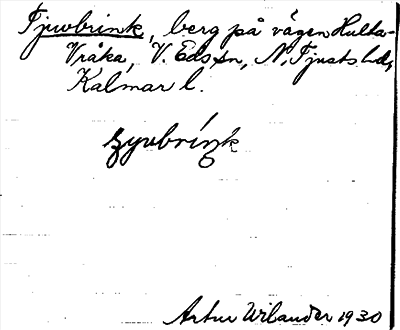 Tjuvbrink, berg på vägen Hulta-
Vråka, V. Eds sn, N. Tjusts hd,
Kalmar l.
Artur Wilander 1930